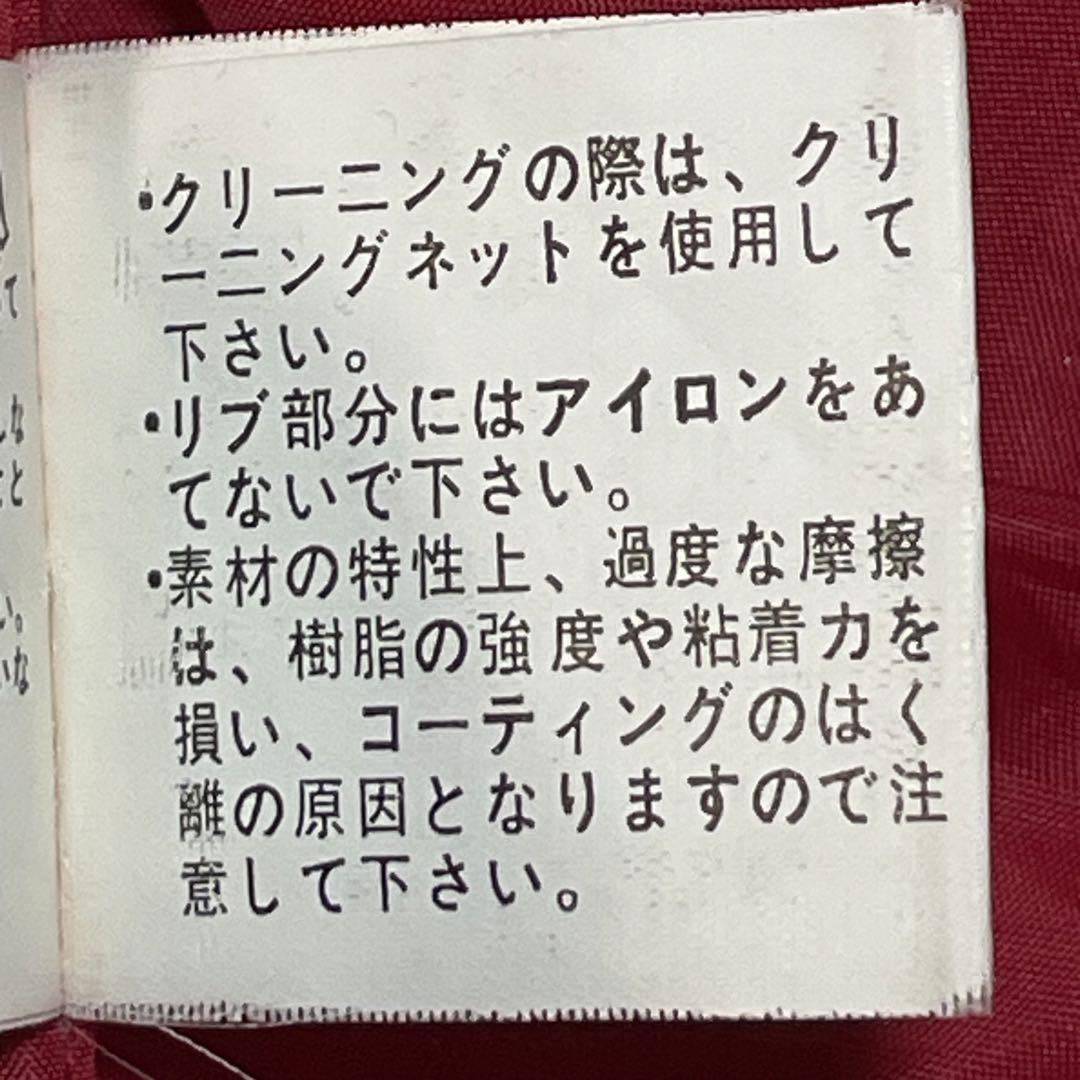 ・クリーニングの際は、クリ
ーニングネットを使用して
下さい。
・リブ部分にはアイロンをあ
てないで下さい。
・素材の特性上、過度な摩擦
は、樹脂の強度や粘着力を
損い、コーティングのはく
離の原因となりますので注
意して下さい。